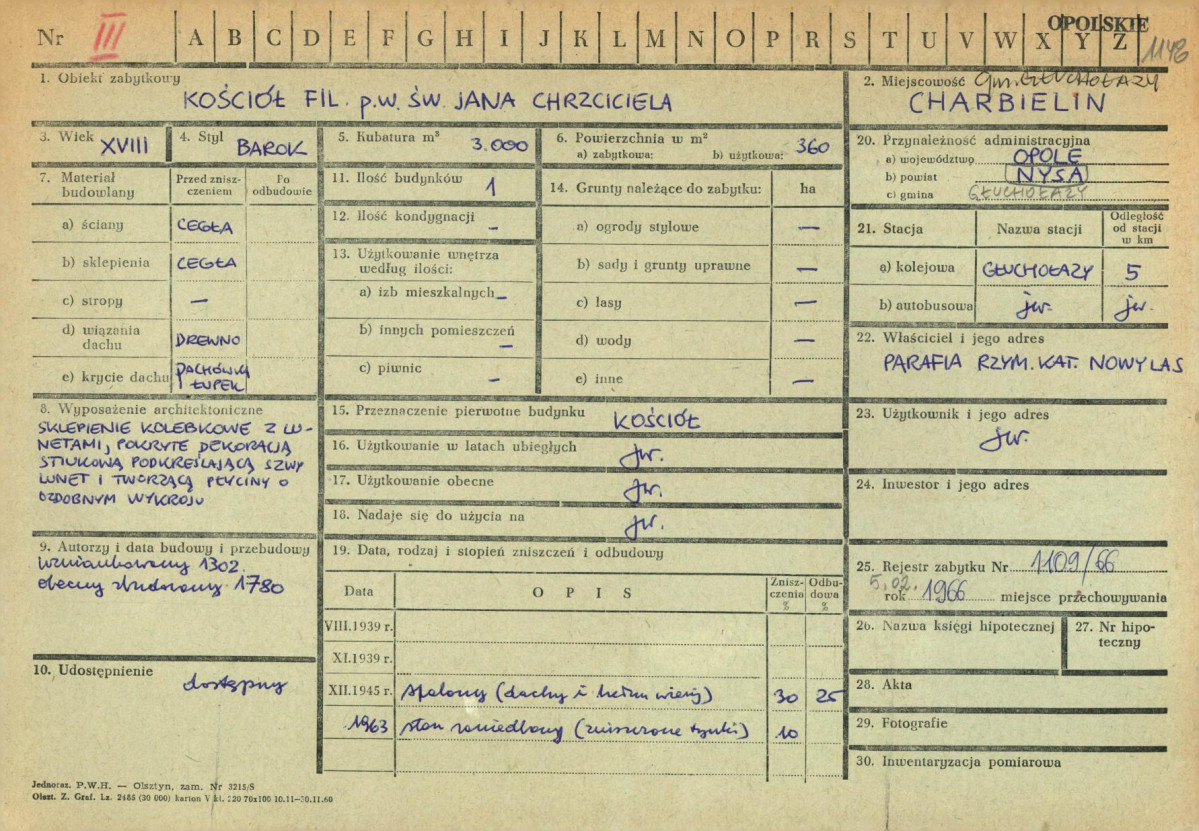 Nr III A B C D E F G H I J K L M N O P R S T U V W X Y Z OPOLSKIE 1148
1. Obiekt zabytkowy
KOŚCIÓŁ FIL. p.w. ŚW. JANA CHRZCICIELA
2. Miejscowość Gm. GŁUCHOŁAZY
CHARBIELIN
3. Wiek XVIII
4. Styl BAROK
5. Kubatura m³ 3.000
6. Powierzchnia w m²
a) zabytkowa: b) użytkowa: 360
7. Materiał budowlany
Przed zniszczeniem
Po odbudowie
a) ściany CEGŁA
b) sklepienia CEGŁA
c) stropy —
d) wiązania dachu DREWNO
e) krycie dachu DACHÓWKA
ŁUPEK
8. Wyposażenie architektoniczne
SKLEPIENIE KOLEBKOWE Z LU-
NETAMI, POKRYTE DEKORACJĄ
STIUKOWĄ PODKREŚLAJĄCĄ SZWY
LUNET I TWORZĄCĄ PŁYCINY O
OZDOBNYM WYKROJU
9. Autorzy i data budowy i przebudowy
wzmiankowany 1302.
obecny zbudowany 1780
10. Udostępnienie
dostępny
11. Ilość budynków 1
12. Ilość kondygnacji –
13. Użytkowanie wnętrza
według ilości:
a) izb mieszkalnych –
b) innych pomieszczeń –
c) piwnic –
14. Grunty należące do zabytku: ha
a) ogrody stylowe —
b) sady i grunty uprawne —
c) lasy —
d) wody —
e) inne —
15. Przeznaczenie pierwotne budynku KOŚCIÓŁ
16. Użytkowanie w latach ubiegłych jw.
17. Użytkowanie obecne jw.
18. Nadaje się do użycia na jw.
19. Data, rodzaj i stopień zniszczeń i odbudowy
Data O P I S Zniszczenia % Odbudowa %
VIII.1939 r.
XI.1939 r.
XII.1945 r. spalony (dachy i hełm wieży) 30 25
1963 stan zaniedbany (zniszczone tynki) 10
20. Przynależność administracyjna
a) województwo OPOLE
b) powiat NYSA
c) gmina GŁUCHOŁAZY
21. Stacja Nazwa stacji Odległość od stacji w km
a) kolejowa GŁUCHOŁAZY 5
b) autobusowa jw. jw.
22. Właściciel i jego adres
PARAFIA RZYM. KAT. NOWY LAS
23. Użytkownik i jego adres
jw.
24. Inwestor i jego adres
25. Rejestr zabytku Nr 1109/66
5.02. rok 1966 miejsce przechowywania
26. Nazwa księgi hipotecznej
27. Nr hipoteczny
28. Akta
29. Fotografie
30. Inwentaryzacja pomiarowa
Jednoraz. P.W.H. — Olsztyn, zam. Nr 3215/S
Olszt. Z. Graf. Lz. 2485 (30 000) karton V kl. 220 70x100 10.11—30.11.60